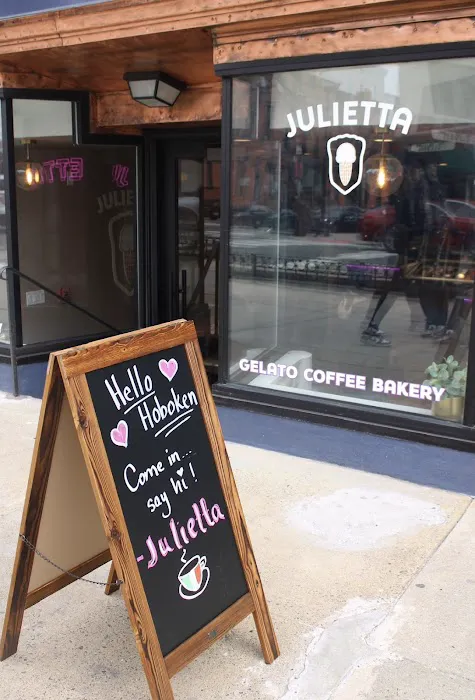 JULIETTA
GELATO COFFEE BAKERY
JULIE
Hello
Hoboken
Come in...
say hi!
-Julietta